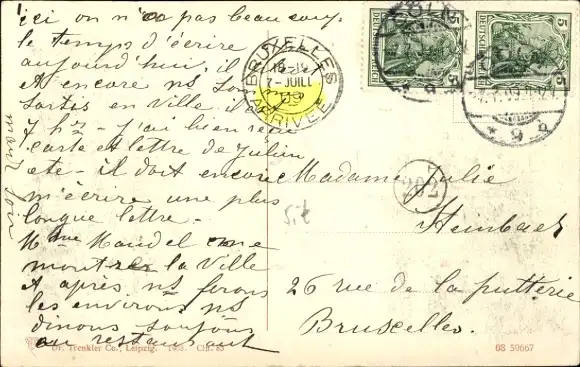 ici on n'a pas beaucoup
le temps d'écrire
aujourd'hui, il
et encore ns sommes
sortis en ville il e
7 hrs - j'ai bien reçu
carte et lettre de Julien
ete - il doit encore
m'écrire une plus
longue lettre -
Mme Mandel me
montrer la ville
et après ns ferons
les environs ns
dinons toujours
au restaurant
BRUXELLES
18-19
7-JUIL
09
ARRIVÉE
5 DEUTSCHES REICH
5 DEUTSCHES REICH
202
Madame Julie
Steinbach
26 rue de la putterie
Bruxelles.
Dr. Trenkler Co., Leipzig. 1908.
08 59667